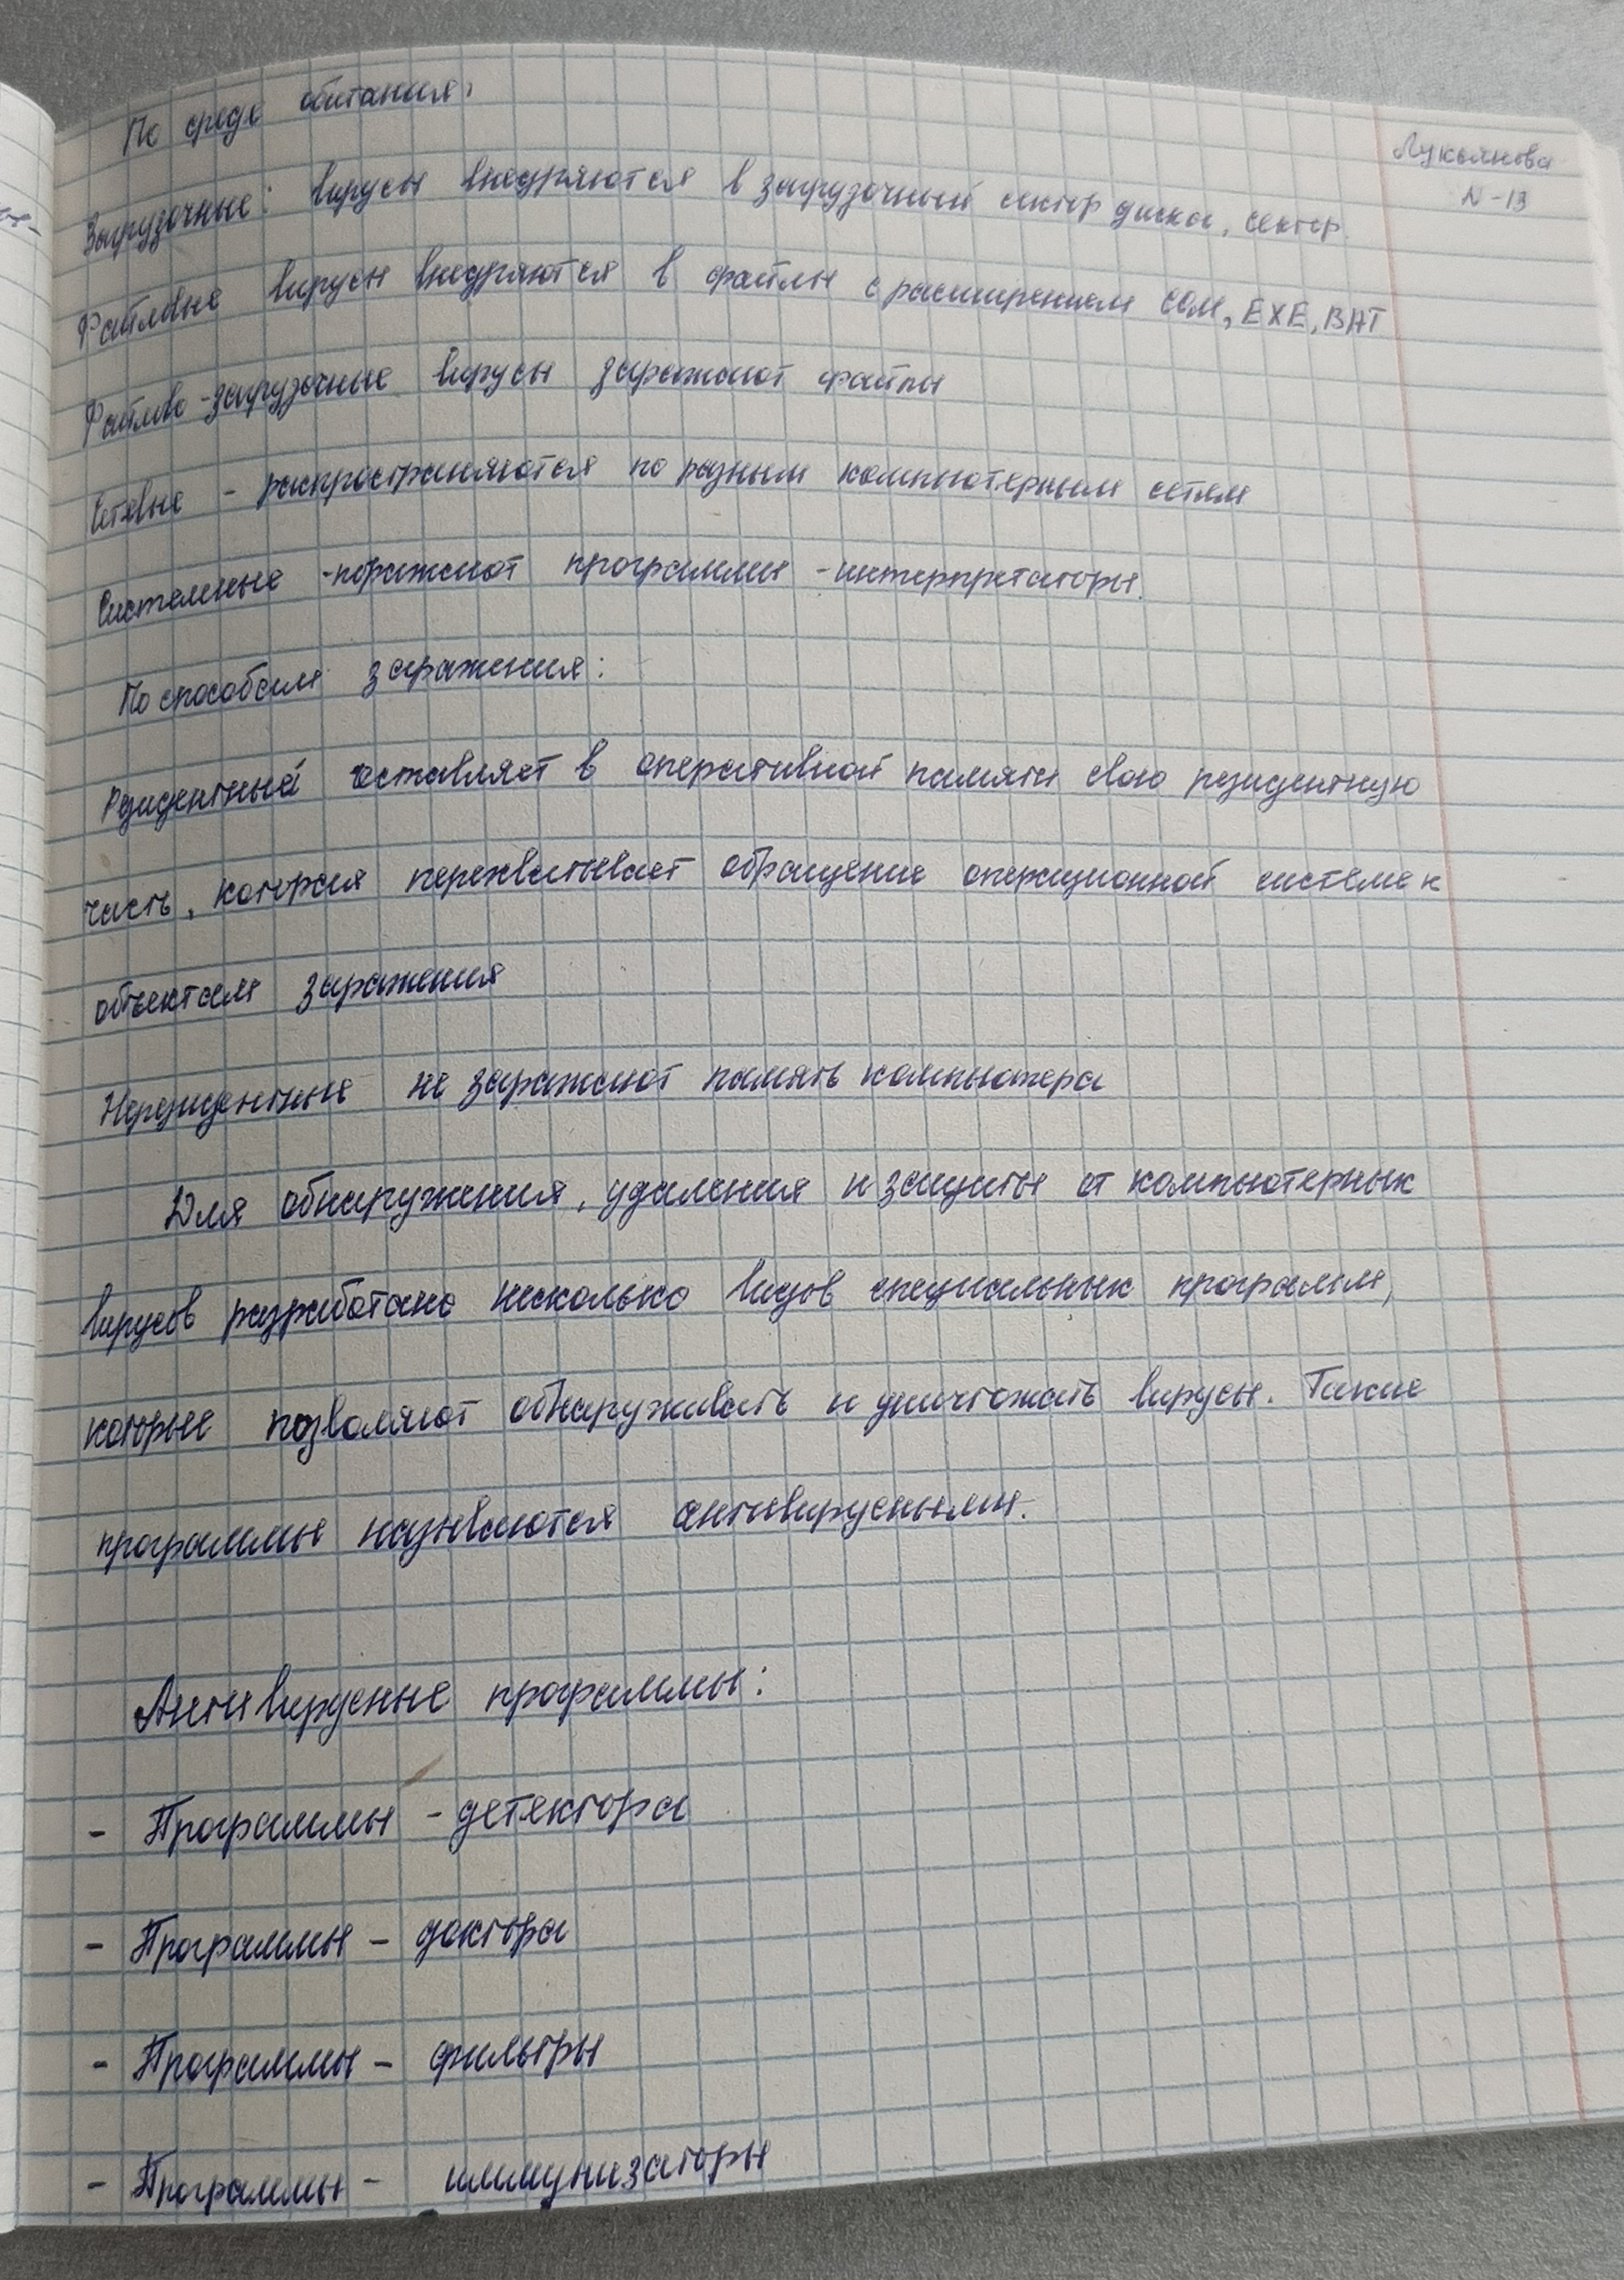 По среде обитания:
Лукьянова
N-13
Загрузочные: вирусы внедряются в загрузочный сектор диска, сектор.
Файловые вирусы внедряются в файлы с расширением COM, EXE, BAT
Файлово-загрузочные вирусы заражают файлы
Сетевые - распространяются по разным компьютерным сетям
Системные - поражают программы - интерпретаторы.
По способам заражения:
Резидентный оставляет в оперативной памяти свою резидентную
часть, которая перехватывает обращение операционной системе к
объектам заражения
Нерезидентные не заражают память компьютера
Для обнаружения, удаления и защиты от компьютерных
вирусов разработано несколько видов специальных программ,
которые позволяют обнаруживать и уничтожать вирусы. Такие
программы называются антивирусными.
Антивирусные программы:
- Программы - детектора
- Программы - доктора
- Программы - фильтры
- Программы - иммунизаторы